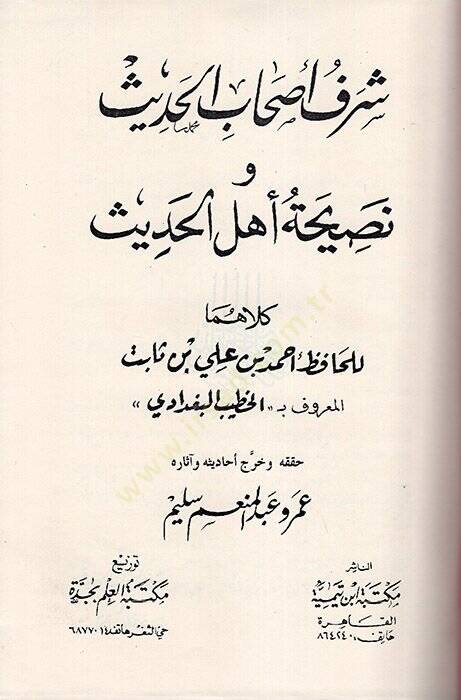 شرف أصحاب الحديث
و
نصيحة أهل الحديث
كلاهما
للحافظ أحمد بن علي بن ثابت
المعروف بـ «الخطيب البغدادي»
حققه وخرَّج أحاديثه وآثاره
عمرو عبد المنعم سليم
الناشر
مكتبة ابن تيمية
القاهرة
هاتف: ٨٦٤٢٤٠
توزيع
مكتبة العلم بجدة
حي الثغر هاتف: ٦٨٧٧٠١٤